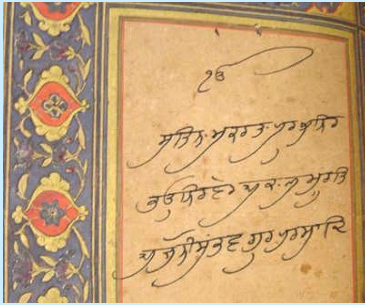 ੴ
ਸਤਿਨਾਮੁ ਕਰਤਾ ਪੁਰਖੁ ਨਿਰ
ਭਉ ਨਿਰਵੈਰੁ ਅਕਾਲ ਮੂਰਤਿ
ਅਜੋਨੀ ਸੰਭਵ ਗੁਰ ਪਰਸਾਦਿ